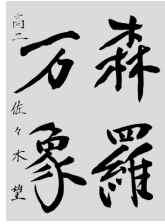 森羅
万象
高二 佐々木望